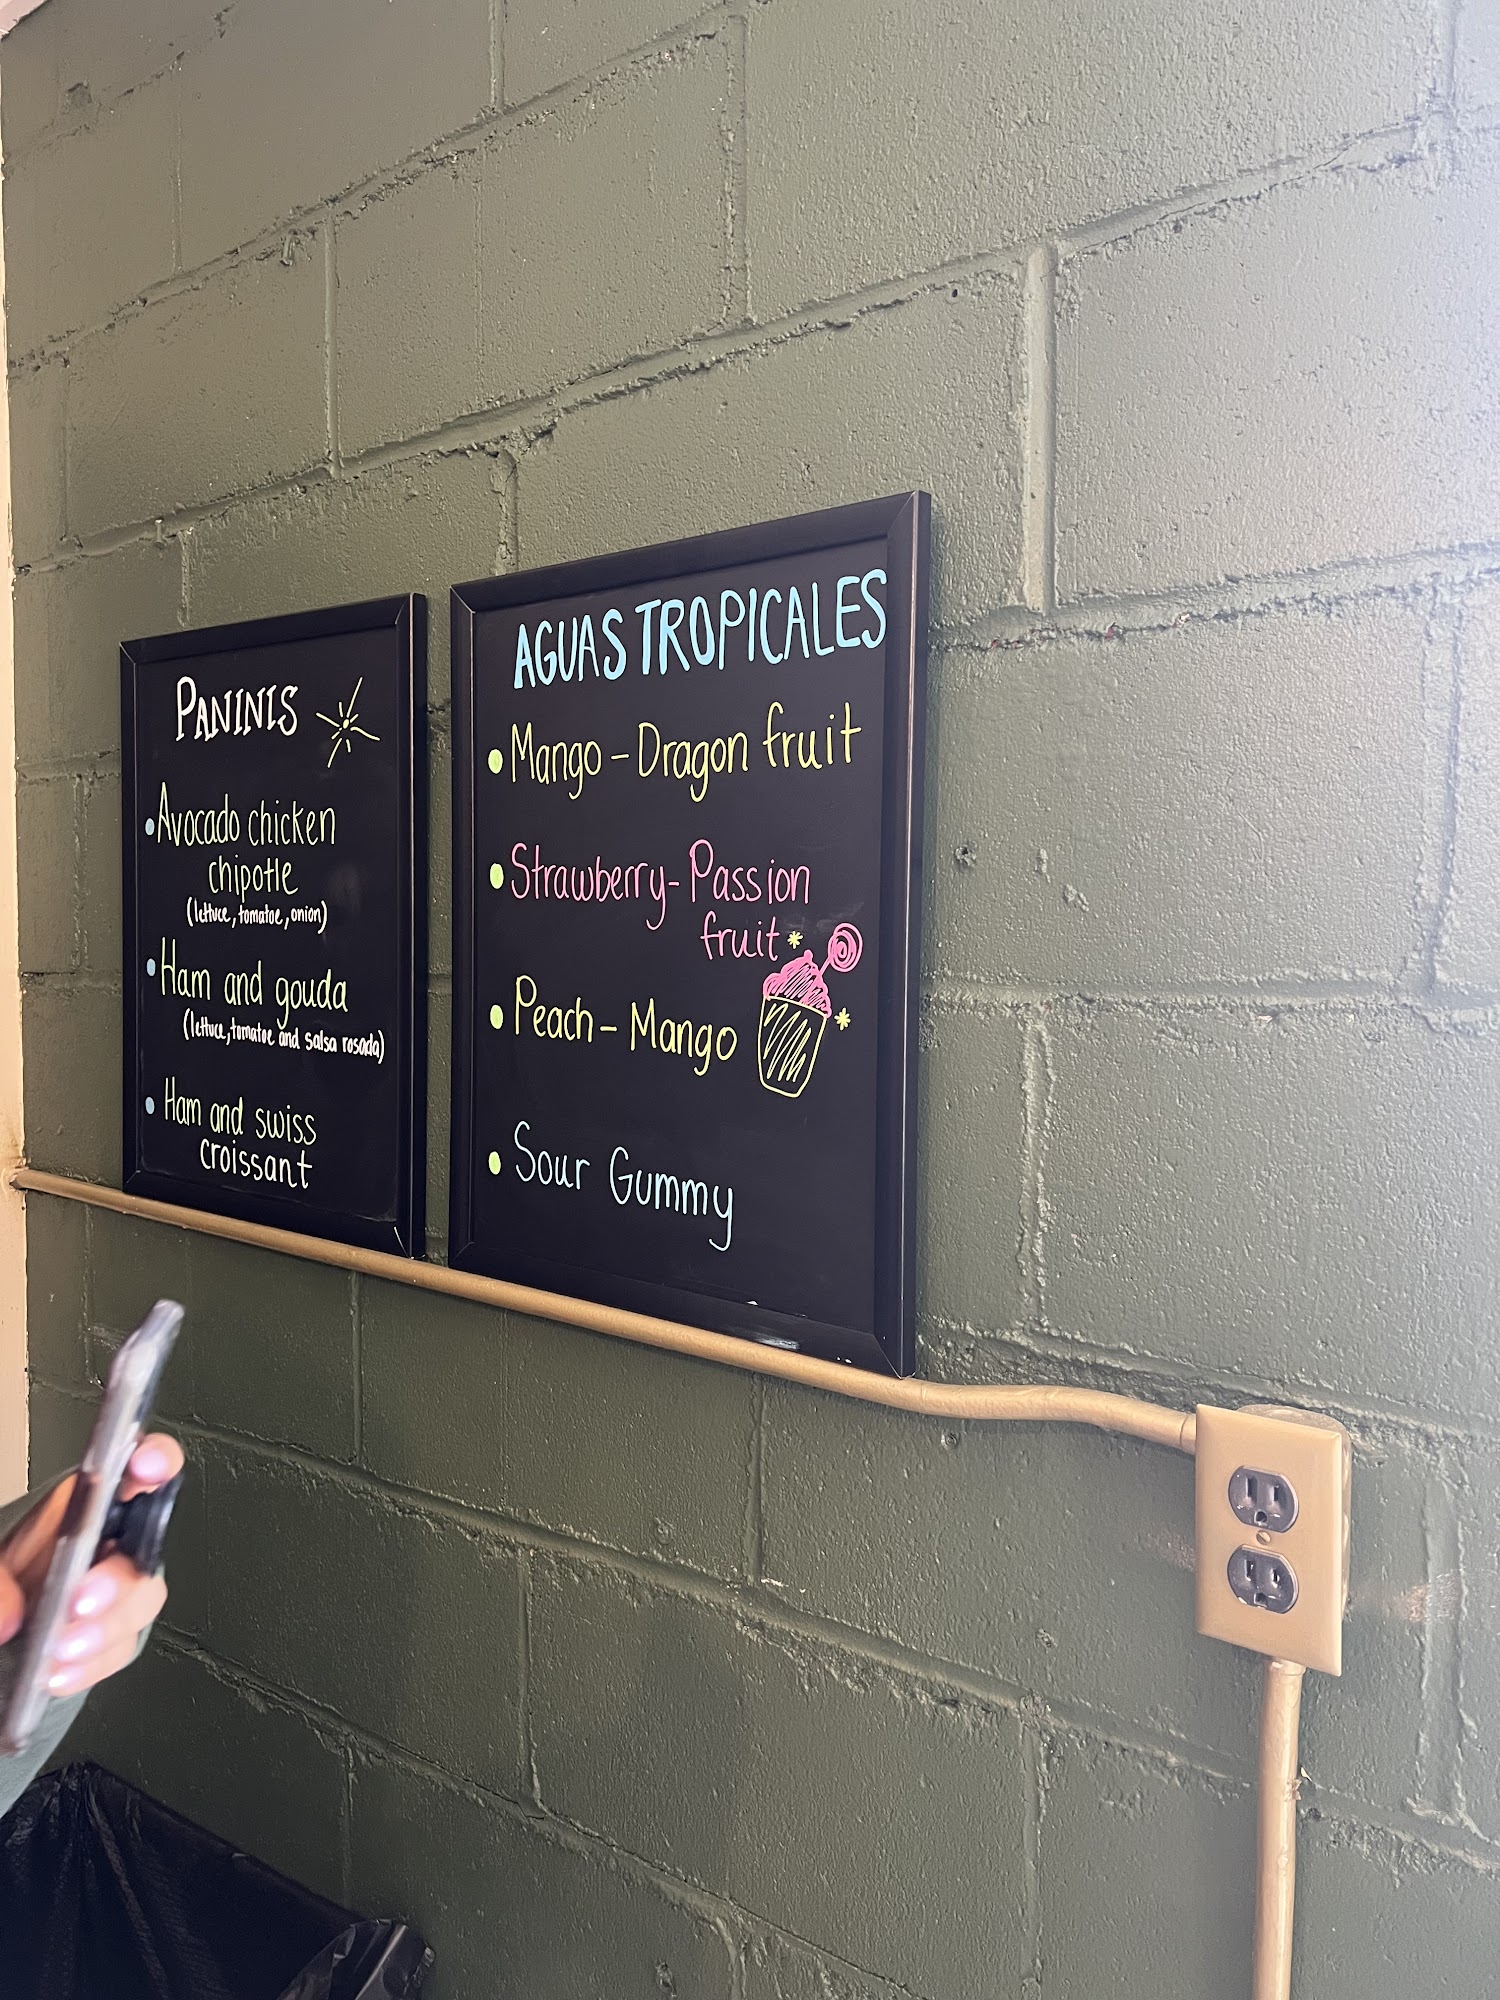 PANINIS
• Avocado chicken
chipotle
(lettuce, tomatoe, onion)
• Ham and gouda
(lettuce, tomatoe and salsa rosada)
• Ham and swiss
croissant
AGUAS TROPICALES
• Mango - Dragon fruit
• Strawberry - Passion
fruit
• Peach - Mango
• Sour Gummy